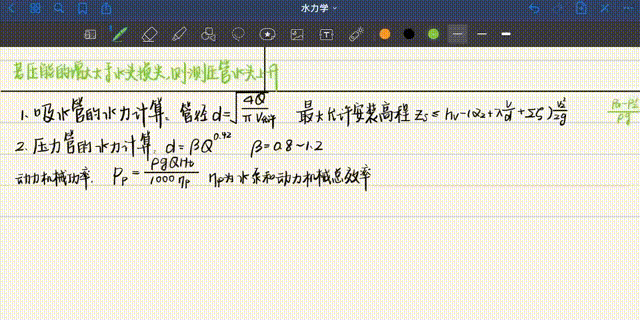 水力学
若压能的增大大于水头损失,则测压管水头上升
1.吸水管的水力计算. 管径d=√(4Q/πV允许) 最大允许安装高程 Zs≤hv-(α2+λ l/d+Σζ)v²/2g
2.压力管的水力计算. d=βQ^0.42 β=0.8~1.2
动力机械功率. Pp=ρgQHt/1000ηp ηp为水泵和动力机械总效率